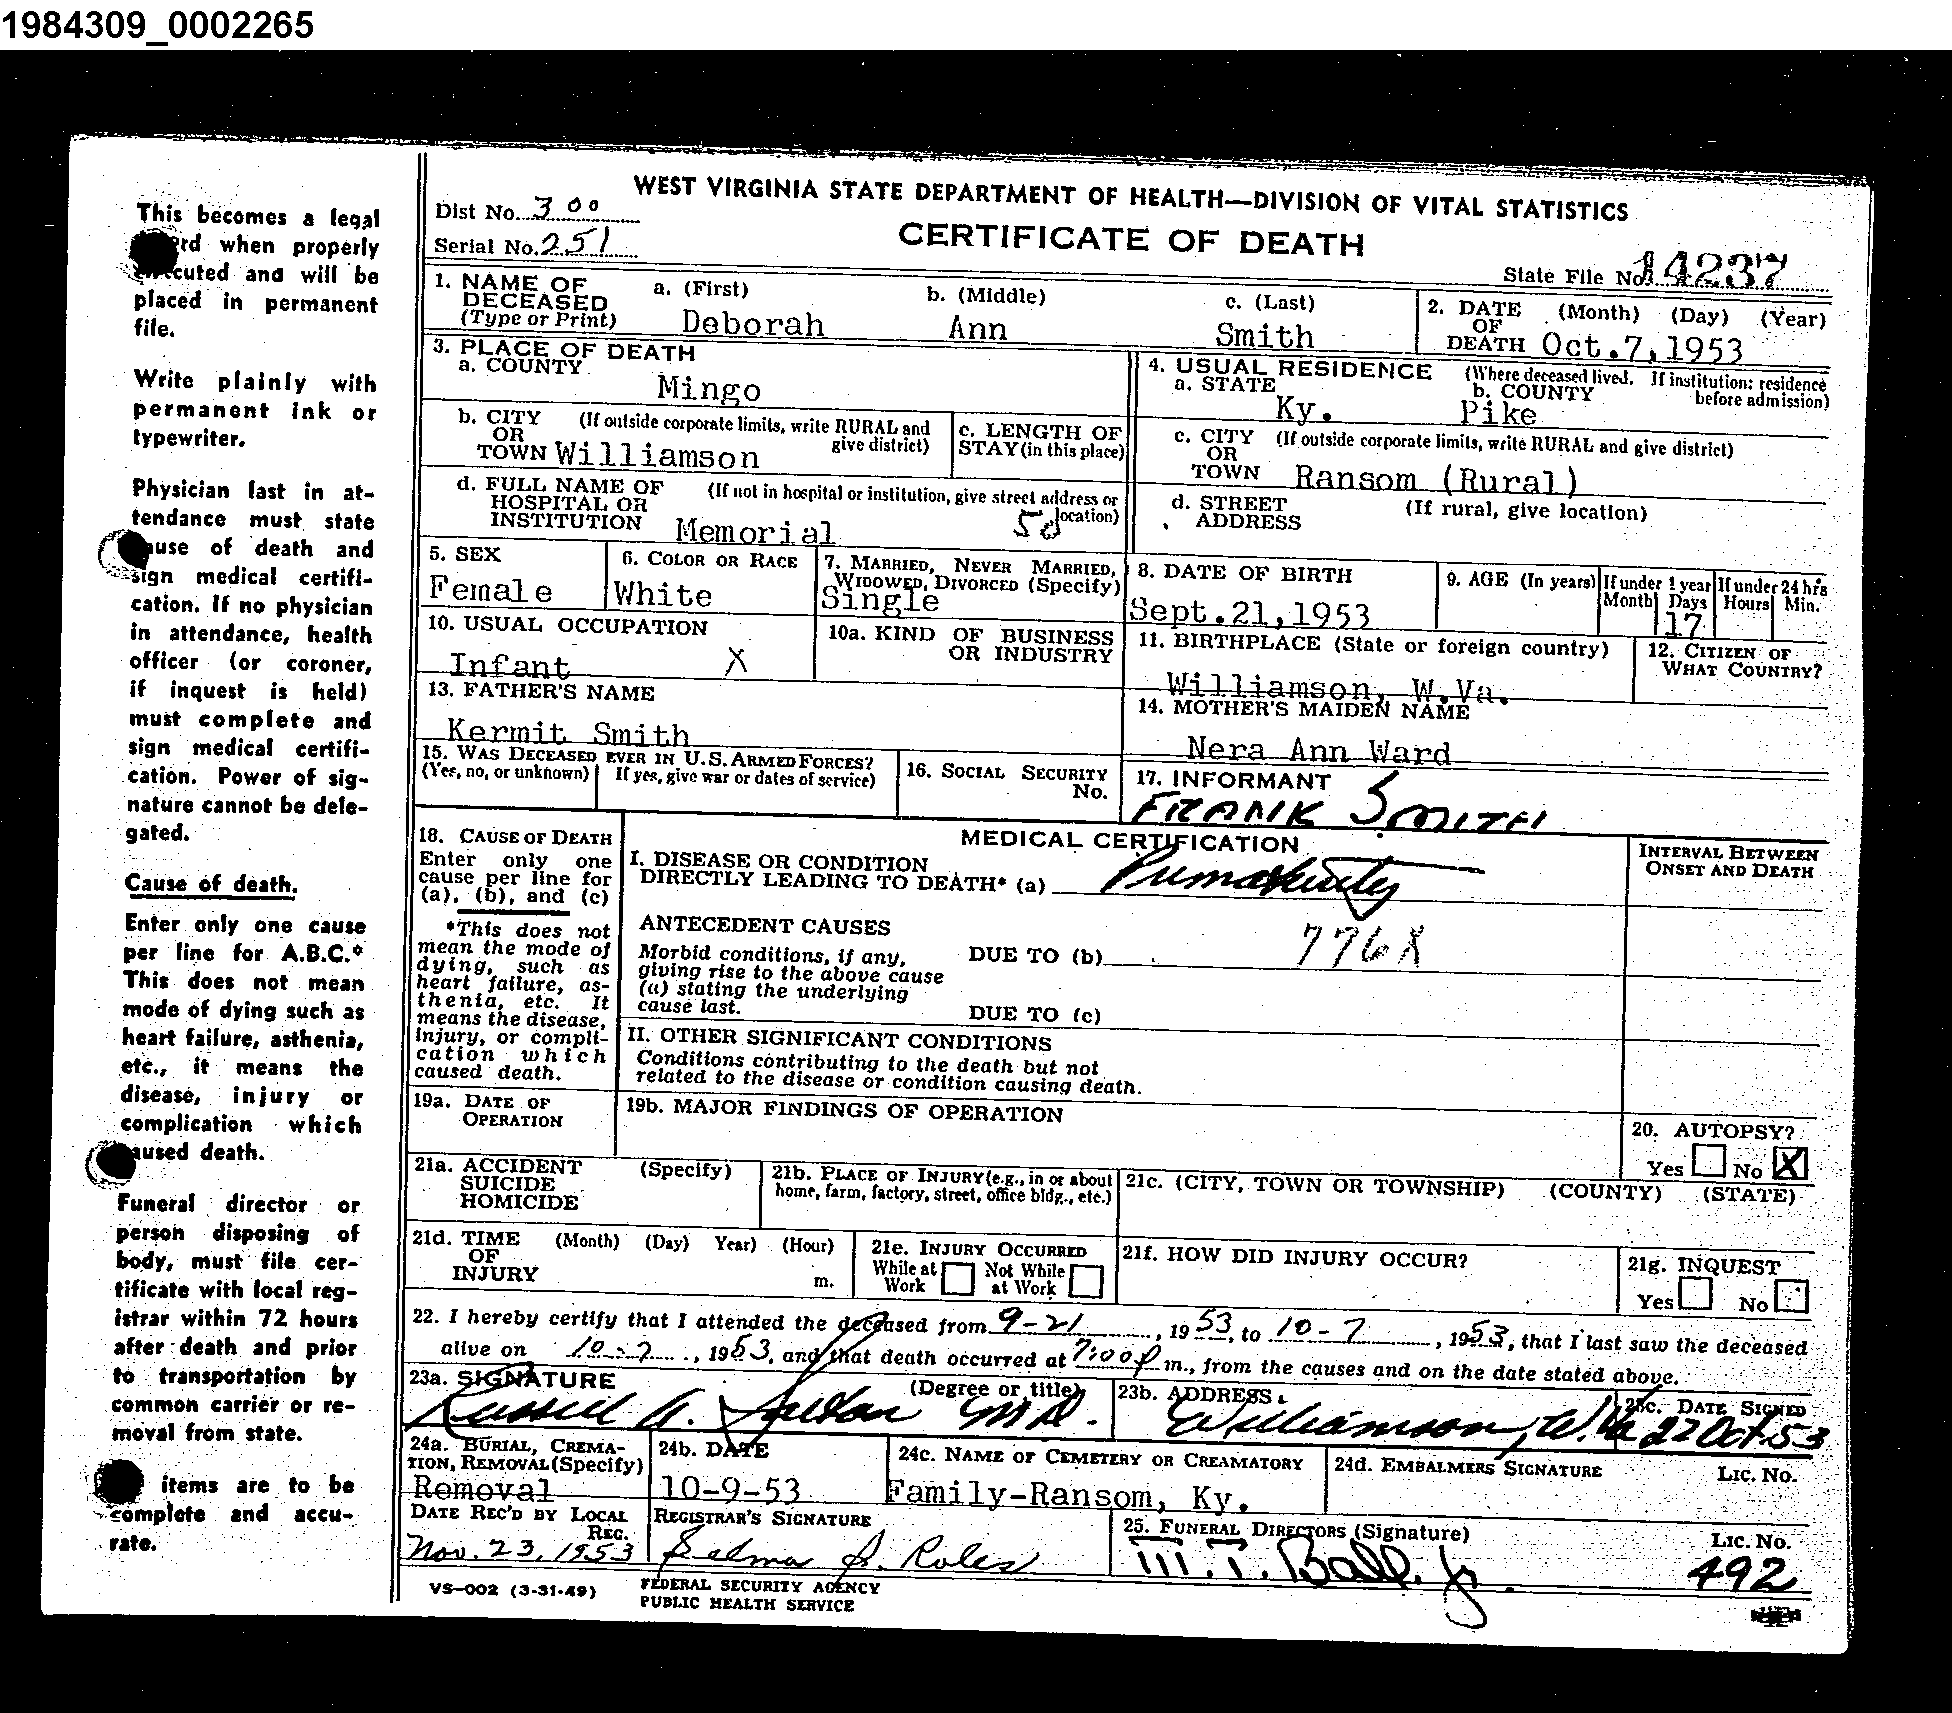 1984309_0002265
This becomes a legal
rd when properly
cuted and will be
placed in permanent
file.
Write plainly with
permanent ink or
typewriter.
Physician last in at-
tendance must state
ause of death and
sign medical certifi-
cation. If no physician
in attendance, health
officer (or coroner,
if inquest is held)
must complete and
sign medical certifi-
cation. Power of sig-
nature cannot be dele-
gated.
Cause of death.
Enter only one cause
per line for A.B.C.*
This does not mean
mode of dying such as
heart failure, asthenia,
etc., it means the
disease, injury or
complication which
aused death.
Funeral director or
person disposing of
body, must file cer-
tificate with local reg-
istrar within 72 hours
after death and prior
to transportation by
common carrier or re-
moval from state.
items are to be
complete and accu-
rate.
WEST VIRGINIA STATE DEPARTMENT OF HEALTH—DIVISION OF VITAL STATISTICS
Dist No. 300
CERTIFICATE OF DEATH
Serial No. 251
State File No. 14237
1. NAME OF DECEASED (Type or Print) a. (First) b. (Middle) c. (Last)
Deborah Ann Smith
2. DATE OF DEATH (Month) (Day) (Year)
Oct.7,1953
3. PLACE OF DEATH
a. COUNTY
Mingo
4. USUAL RESIDENCE (Where deceased lived. If institution: residence before admission)
a. STATE b. COUNTY
Ky. Pike
b. CITY OR TOWN (If outside corporate limits, write RURAL and give district)
Williamson
c. LENGTH OF STAY (in this place)
c. CITY OR TOWN (If outside corporate limits, write RURAL and give district)
Ransom (Rural)
d. FULL NAME OF HOSPITAL OR INSTITUTION (If not in hospital or institution, give street address or location)
Memorial
d. STREET ADDRESS (If rural, give location)
5. SEX
Female
6. COLOR OR RACE
White
7. MARRIED, NEVER MARRIED, WIDOWED, DIVORCED (Specify)
Single
8. DATE OF BIRTH
Sept.21,1953
9. AGE (In years) If under 1 year If under 24 hrs
Month Days Hours Min.
17
10. USUAL OCCUPATION
Infant X
10a. KIND OF BUSINESS OR INDUSTRY
11. BIRTHPLACE (State or foreign country)
Williamson, W.Va.
12. CITIZEN OF WHAT COUNTRY?
13. FATHER'S NAME
Kermit Smith
14. MOTHER'S MAIDEN NAME
Nera Ann Ward
15. WAS DECEASED EVER IN U.S. ARMED FORCES?
(Yes, no, or unknown) If yes, give war or dates of service)
16. SOCIAL SECURITY No.
17. INFORMANT
FRANK SMITH
18. CAUSE OF DEATH
Enter only one
cause per line for
(a), (b), and (c)
*This does not
mean the mode of
dying, such as
heart failure, as-
thenia, etc. It
means the disease,
injury, or compli-
cation which
caused death.
MEDICAL CERTIFICATION
I. DISEASE OR CONDITION
DIRECTLY LEADING TO DEATH* (a) Prematurity
ANTECEDENT CAUSES
Morbid conditions, if any,
giving rise to the above cause
(a) stating the underlying
cause last.
DUE TO (b) 776X
DUE TO (c)
II. OTHER SIGNIFICANT CONDITIONS
Conditions contributing to the death but not
related to the disease or condition causing death.
INTERVAL BETWEEN
ONSET AND DEATH
19a. DATE OF OPERATION
19b. MAJOR FINDINGS OF OPERATION
20. AUTOPSY?
Yes No X
21a. ACCIDENT SUICIDE HOMICIDE (Specify)
21b. PLACE OF INJURY (e.g., in or about home, farm, factory, street, office bldg., etc.)
21c. (CITY, TOWN OR TOWNSHIP) (COUNTY) (STATE)
21d. TIME OF INJURY (Month) (Day) Year) (Hour) m.
21e. INJURY OCCURRED
While at Work Not While at Work
21f. HOW DID INJURY OCCUR?
21g. INQUEST
Yes No
22. I hereby certify that I attended the deceased from 9-21, 1953, to 10-7, 1953, that I last saw the deceased
alive on 10-7, 1953, and that death occurred at 7:00p m., from the causes and on the date stated above.
23a. SIGNATURE (Degree or title)
Russell A. MD.
23b. ADDRESS
Williamson, W.Va
23c. DATE SIGNED
22 Oct 53
24a. BURIAL, CREMATION, REMOVAL (Specify)
Removal
24b. DATE
10-9-53
24c. NAME OF CEMETERY OR CREAMATORY
Family-Ransom, Ky.
24d. EMBALMERS SIGNATURE Lic. No.
DATE REC'D BY LOCAL REG.
Nov. 23, 1953
REGISTRAR'S SIGNATURE
25. FUNERAL DIRECTORS (Signature) Lic. No.
M.T. Ball, Jr. 492
VS-002 (3-31-49)
FEDERAL SECURITY AGENCY
PUBLIC HEALTH SERVICE